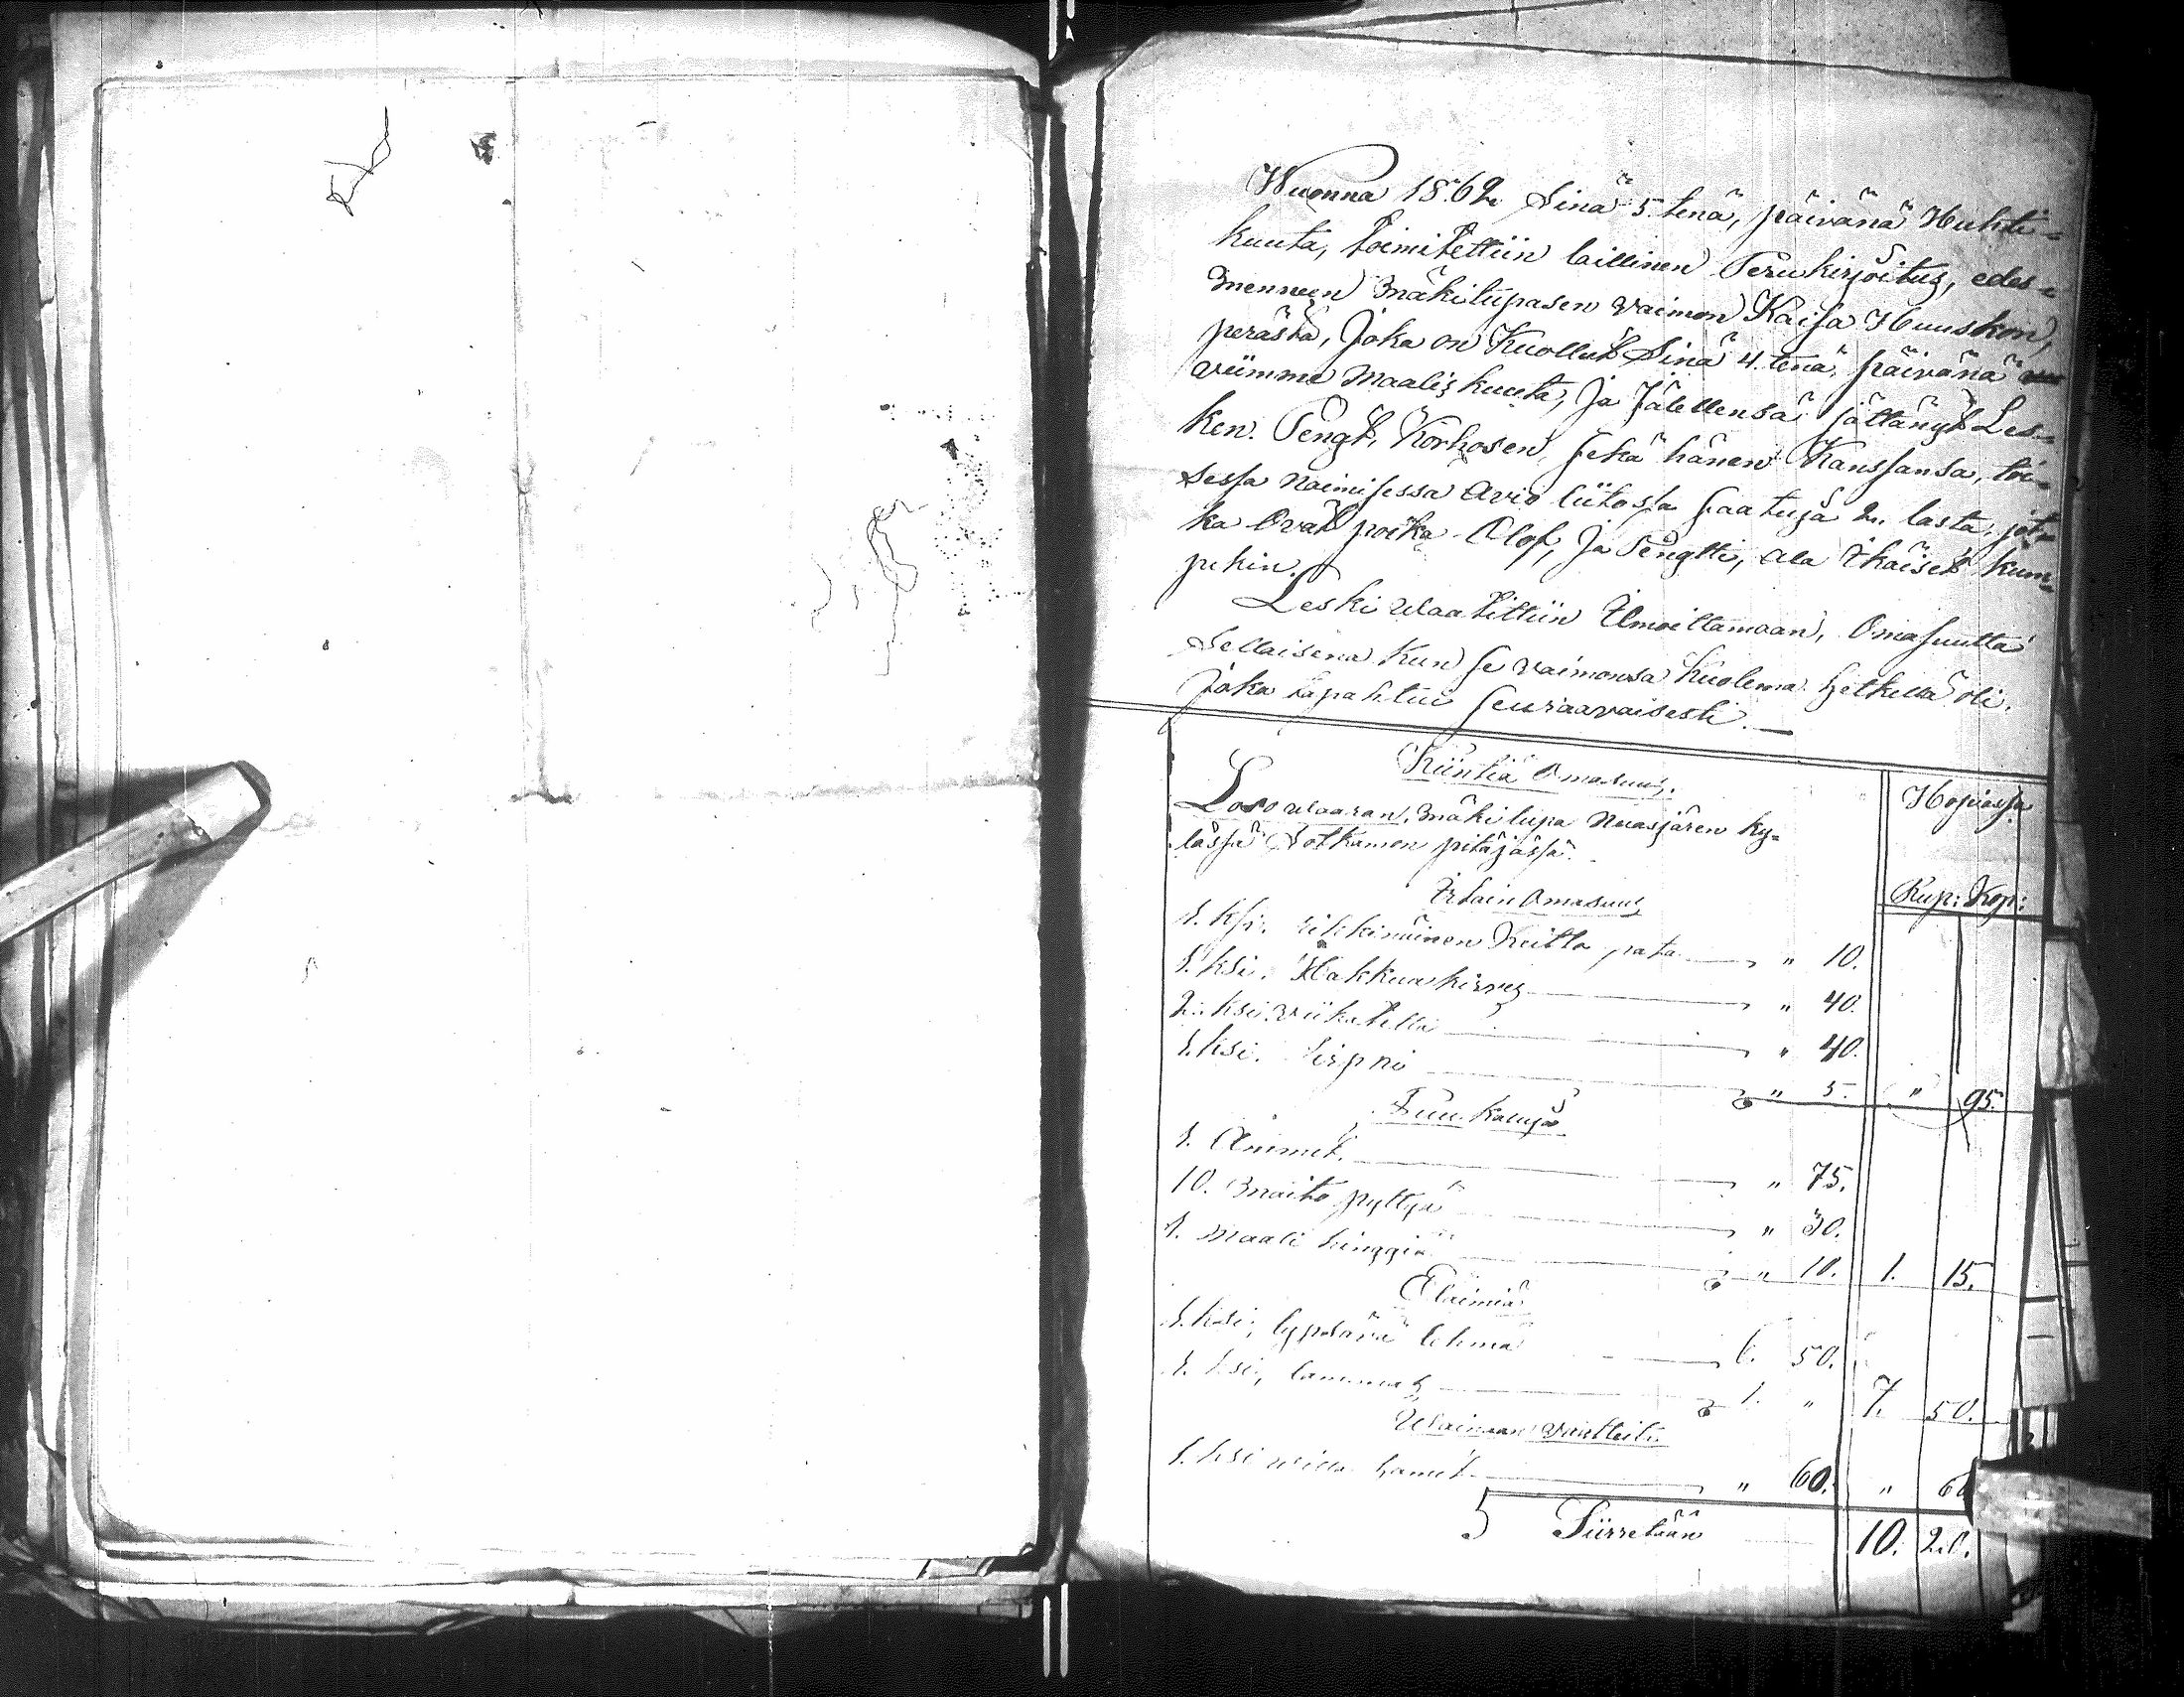 Wuonna 1862 Sinä 5. tenä, päivänä Huhti=
kuuta, toimitettiin laillinen Perukirjoitus, edes=
mennen mäkitupasen vaimon Kaisa Huuskon,
perästä, Joka on Kuollut Sinä 4. tenä päivänä
viimme Maaliskuuta, Ja Jälellensä jättänyt Les=
ken. Pengt, Korhosen, sekä hänen Kanssansa, toi=
sessa naimisessa Avio liitossa saatuja 2. lasta, jot=
ka Ovat poika Olof, Ja Pengtti, ala Ikäiset kum=
pikin.
Leski Waatittiin Ilmoittamaan, Omasuutta
Sellaisena Kun se vaimonsa Kuolema hetkellä oli,
Joka tapahtui seuraavaisesti.
Kiintiä Omasuus. Hopiassa
waaran, mäki tupa Nuasjären ky=
lässä Sotkamon pitäjässä.
Irtain Omasuus Rup: Kop:
1. ksi. rikkinäinen Keitto pata " 10.
1. ksi. Hakkua kirves " 40.
2. ksi. viikatetta " 40.
1. ksi. Sirppi " 5. " 95.
Puu Kaluja
1. Ammet. " 75.
10. maito pyttyä " 30.
1. Maali " 10. 1. 15.
Eläimiä
1. ksi, lypsävä lehmä 6. 50.
1. ksi, lammas 1. " 7. 50.
Waimon vaatteita
1. ksi willa hamet " 60. " 60
Siirretään 10. 20.